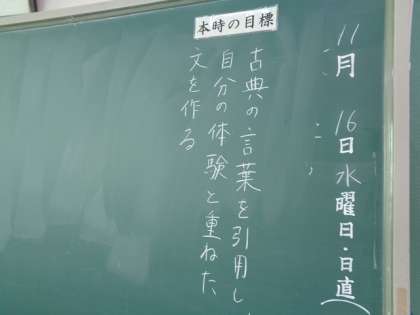 11月16日水曜日・日直
本時の目標
古典の言葉を引用し
自分の体験と重ねた
文を作る